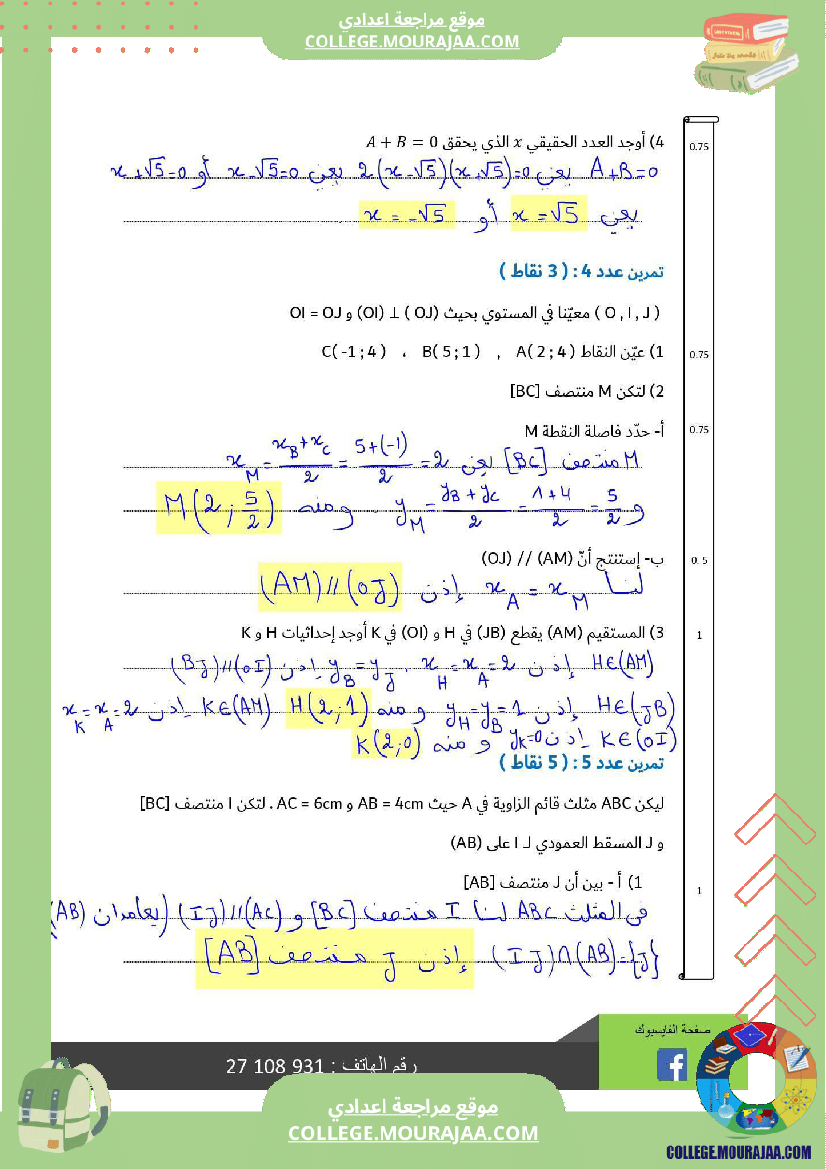 موقع مراجعة اعدادي
COLLEGE.MOURAJAA.COM
4) أوجد العدد الحقيقي x الذي يحقق A + B = 0
0.75
A+B=0 يعني 2(x-√5)(x+√5)=0 يعني x-√5=0 أو x+√5=0
يعني x=√5 أو x=-√5
تمرين عدد 4 : ( 3 نقاط )
( O , I , J ) معيّنا في المستوي بحيث (OI) ⊥ ( OJ) و OI = OJ
1) عيّن النقاط A( 2 ; 4 ) , B( 5 ; 1 ) ، C( -1 ; 4 )
0.75
2) لتكن M منتصف [BC]
أ- حدّد فاصلة النقطة M
0.75
M منتصف [BC] يعني x_M = (x_B+x_C)/2 = (5+(-1))/2 = 2
و y_M = (y_B+y_C)/2 = (1+4)/2 = 5/2 ومنه M(2 ; 5/2)
ب- إستنتج أنّ (AM) // (OJ)
0.5
لنا x_A = x_M إذن (AM)//(OJ)
3) المستقيم (AM) يقطع (JB) في H و (OI) في K أوجد إحداثيات H و K
1
H∈(AM) إذن x_H = x_A = 2 . y_B = y_J إذن (BJ)//(OI)
H∈(JB) إذن y_H = y_B = 1 ومنه H(2 ; 1) K∈(AM) إذن x_K = x_A = 2
K∈(OI) إذن y_K=0 ومنه K(2;0)
تمرين عدد 5 : ( 5 نقاط )
ليكن ABC مثلث قائم الزاوية في A حيث AB = 4cm و AC = 6cm . لتكن I منتصف [BC]
و J المسقط العمودي لـ I على (AB)
1) أ - بين أن J منتصف [AB]
1
في المثلث ABC لنا I منتصف [BC] و (IJ)//(AC) (يعامدان (AB)
(IJ)∩(AB)={J} إذن J منتصف [AB]
صفحة الفايسبوك
رقم الهاتف : 27 108 931
موقع مراجعة اعدادي
COLLEGE.MOURAJAA.COM
COLLEGE.MOURAJAA.COM